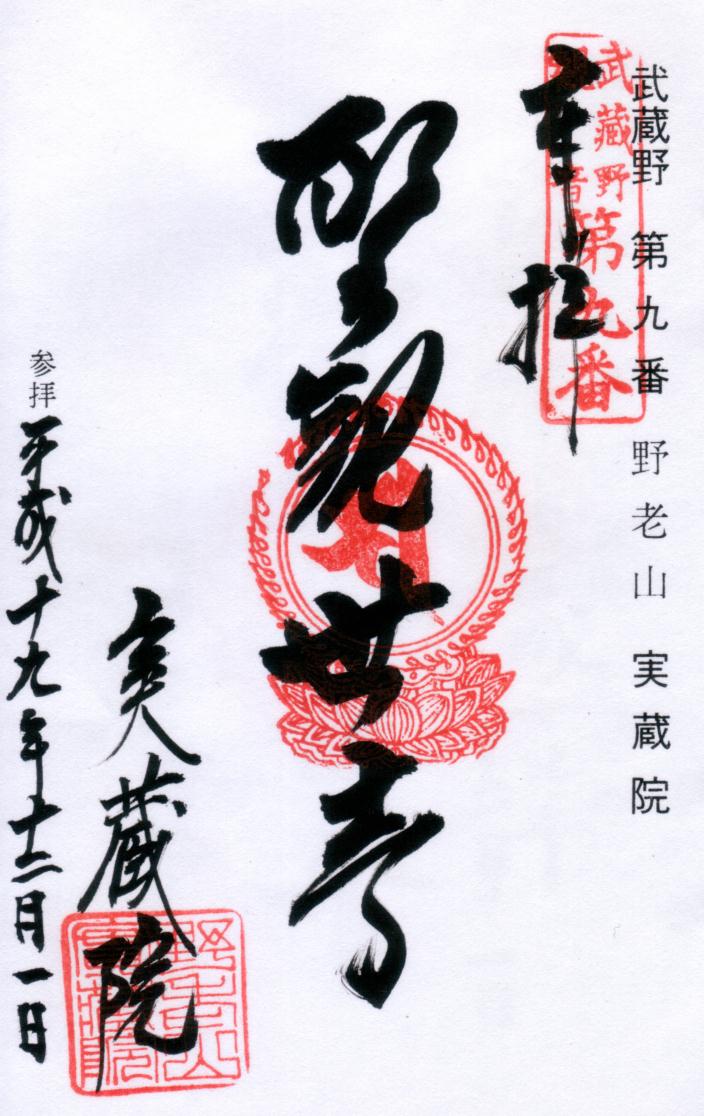 武蔵野 第九番 野老山 実蔵院
武蔵野
観音
第九番
奉拝
聖観世音
実蔵院
野老山
実蔵院
参拝 平成十九年十二月一日